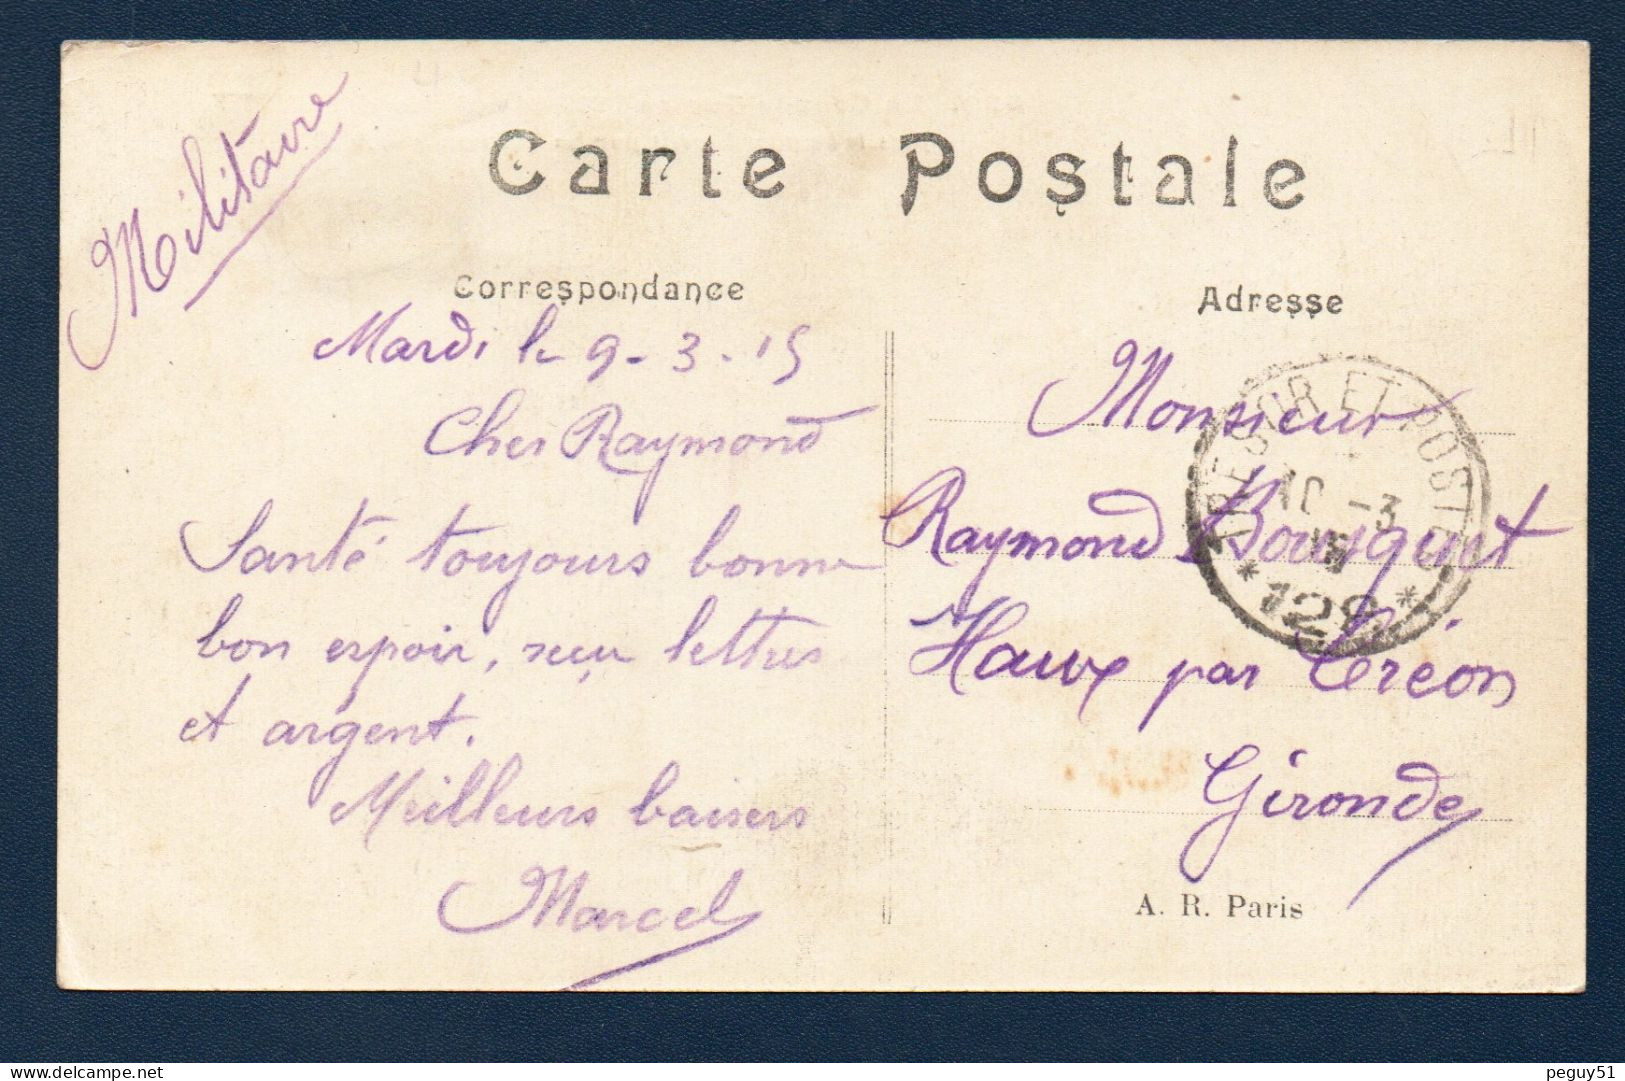 Militaire
Carte Postale
Correspondance
Adresse
Mardi le 9-3-15
Cher Raymond
Santé toujours bonne
bon espoir, reçu lettres
et argent.
Meilleurs baisers
Marcel
Monsieur
Raymond Bousquet
Haux par Créon
Gironde
A. R. Paris
TRESOR ET POSTES
10 -3
15
* 128 *
© delcampe.net
peguy51